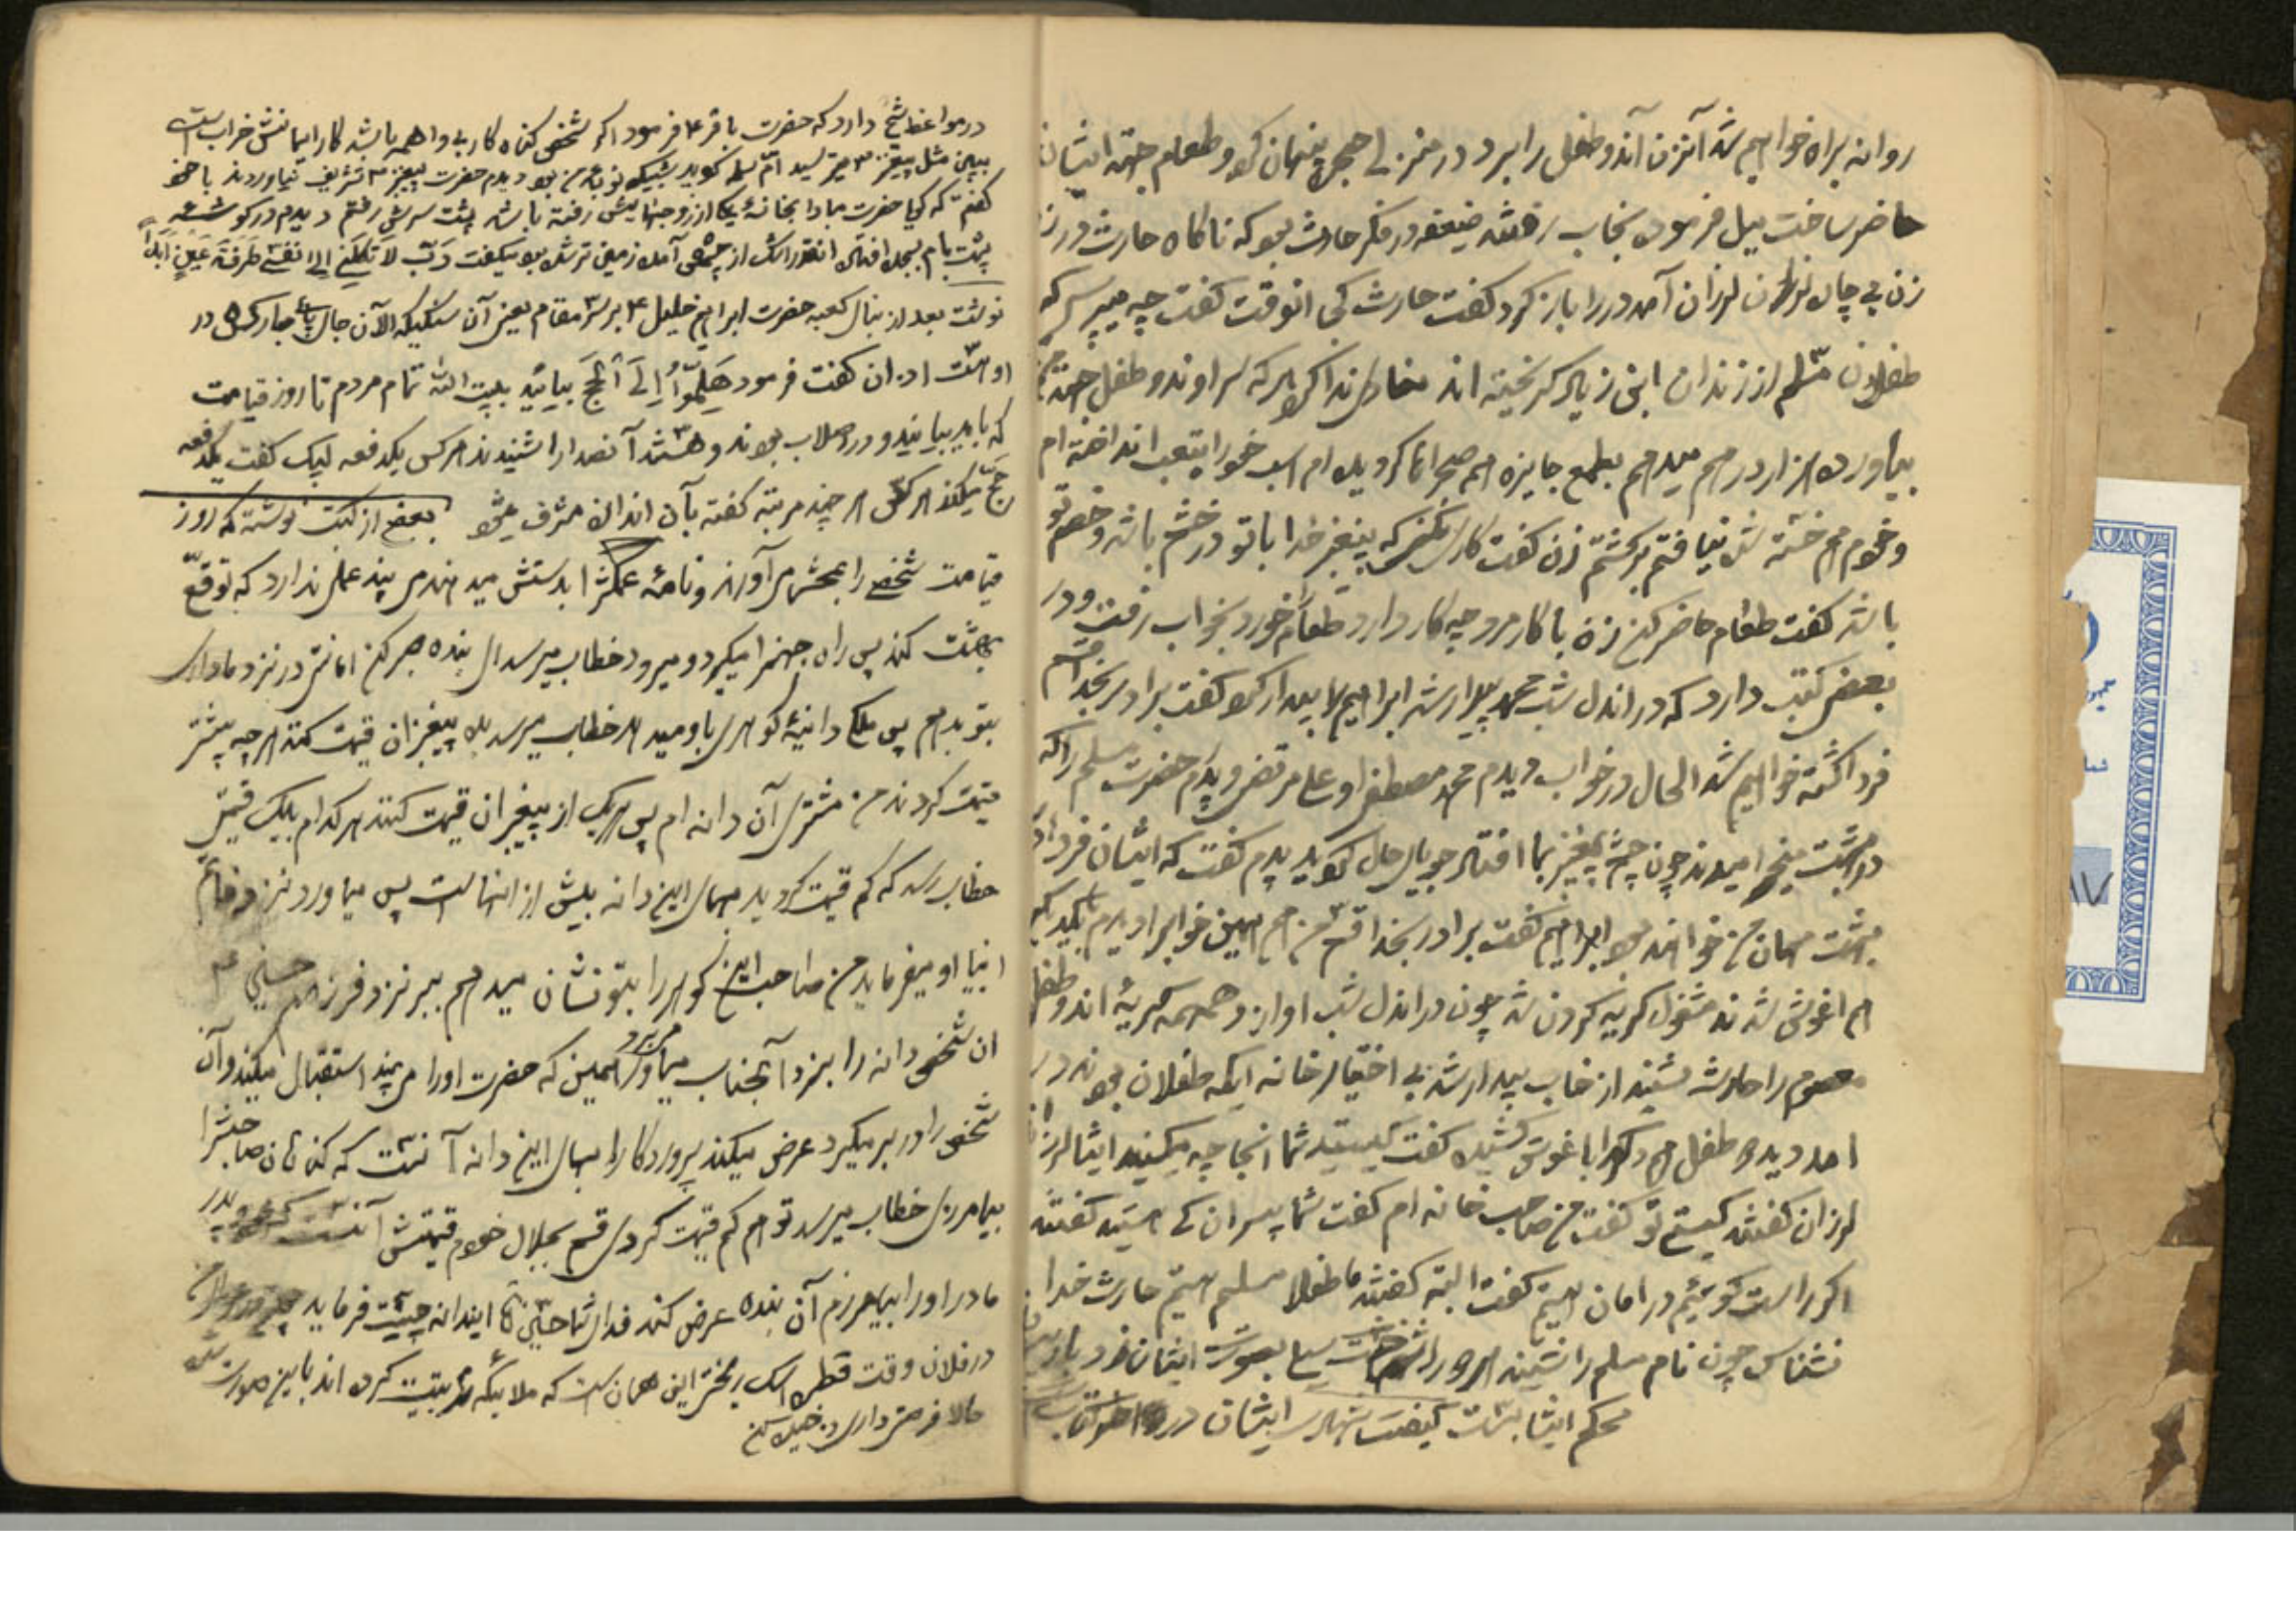 روانه براه خواهیم شد آنزن آندو طفل را برد در منزلی حجره پنهان کرد و طعام جهته ایشان
حاضر ساخت میل فرموده بخاب رفتند ضعیفه در فکر حارث بود که ناکاه حارث در زد
زن بی چاره لرزان لرزان آمد در را باز کرد کفت حارث کجا بودی تا اینوقت کفت چه میپرسی که
طفلان مسلم از زندان ابن زیاد کریخته اند منادی ندا کرد هر که سر اوندو طفل جهته
بیاورد هزار درهم میدهم بطمع جایزه همه صحرا تا کردیده ام اسب خود را بتعب انداخته ام
و خودم هم خسته شده نیافتم برکشتم زن کفت کاری مکن که پیغمبر خدا با تو در خشم باشد و خصم تو
باشد کفت طعام حاضر کن زنرا با کار مرد چه کار دارد طعام خورد بخواب رفت و در
بعضی کتب دارد که در اندل شب محمد بیدار شد ابراهیم را بیدار کرد کفت برادر بخدا قسم
فردا کشته خواهیم شد الحال در خواب دیدم محمد مصطفی و علی مرتضی و پدرم حضرت مسلم را که
در بهشت میخرامیدند چون چشم پیغمبر بما افتاد جویای حال کردید پدرم کفت که ایشان فردا در
بهشت مهمان من خواهند بود ابراهیم کفت برادر بخدا قسم من هم همین خواب را دیدم یکدیکر
هم اغوش شدند مشغول کریه کردن شدند چون در اندل شب اواز و همهمه کریهٔ اندو طفل
معصوم را حارث شنید از خاب بیدار شد بی اختیار در خانه ایکه طفلان بودند در
امد دید دو طفل هم دیکر را باغوش کشیده کفت کیستید شما انجا چه میکنید ایشان لرزان
لرزان کفتند کیستی تو کفت من صاحب خانه ام کفت شما پسران کی هستید کفتند
اکر راست کوئیم در امان هستیم کفت البته کفتند ما طفلان مسلم هستیم حارث خدا
نشناس چون نام مسلم را شنید هر دو را سیلی بصورت ایشان زد بازوی
محکم ایشا بست کیفیت شهادت ایشان در
در مواعظ شیخ دارد که حضرت باقر ع فرمود اکر شخصی کناه کار بی واهمه باشد کار ایمانش خراب است
ببین مثل پیغمبر ص میترسید امّ سلمه کوید شبیکه نوبهٔ من بود دیدم حضرت پیغمبر ص تشریف نیاوردند با خود
کفتم که کویا حضرت مبادا بخانهٔ یکی از زوجهایش رفته باشد پشت سرش رفتم دیدم در کوشهٔ
پشت بام بسجده افتاده انقدر اشک از چشمش آمده زمین تر شده بود میکفت رَبِّ لا تَکِلْنی اِلی نفسی طَرفَةَ عَینٍ اَبَداً
نوشته بعد از بنای کعبه حضرت ابراهیم خلیل ع بر سر مقام یعنی آن سنکیکه الآن جای پای مبارکش در
او هست اذان کفت فرمود هَلِمُّوا اِلَی الْحَجِّ بیائید ببیت الله تمام مردم تا روز قیامت
که باید بیایند و در اصلاب بودند و هستند آنصدا را شنیدند هر کس یکدفعه لبیک کفت یکدفعه
حَجّ میکند هر کس هر چند مرتبه کفته بآن اندازه مشرف میشود بعضی از کتب نوشته که روز
قیامت شخصی را بمحشر می آورند و نامهٔ عملش را بدستش میدهند می بیند عملی ندارد که توقّع
بهشت کند پس راه جهنم را میکیرد و میرود خطاب میرسد ای بنده صبر کن امانتی در نزد ما داری
بتو بدهیم پس ملکی دانهٔ کوهری باو میدهد خطاب میرسد به پیغمبران قیمت کنند هر چه بیشتر
قیمت کردند من مشتری آن دانه ام پس هر یک از پیغمبران قیمت کنند هر کدام بیک قیمتی
خطاب رسد که کم قیمت کردید بهای این دانه بیش از اینهاست پس میاورد نزد خاتم
انبیا او میفرماید من صاحب این کوهر را بتو نشان میدهم ببر نزد فرزندم حسین ع
ان شخص دانه را بنزد آنجناب میاورد همین که حضرت او را می بیند استقبال میکند و آن
شخص را در بر میکیرد عرض میکند پروردکارا بهای این دانه آنست که کناهان صاحبش را
بیامرزی خطاب میرسد تو هم کم قیمت کردی قسم بجلال خودم قیمتش آنست که پدر
مادر او را بیامرزم آن بنده عرض کند فدای شما حسین آیا ایندانه چیست فرماید
در فلان وقت قطره اشک ریختی این همان است که ملائیکه تربیت کرده اند باین صورت شده